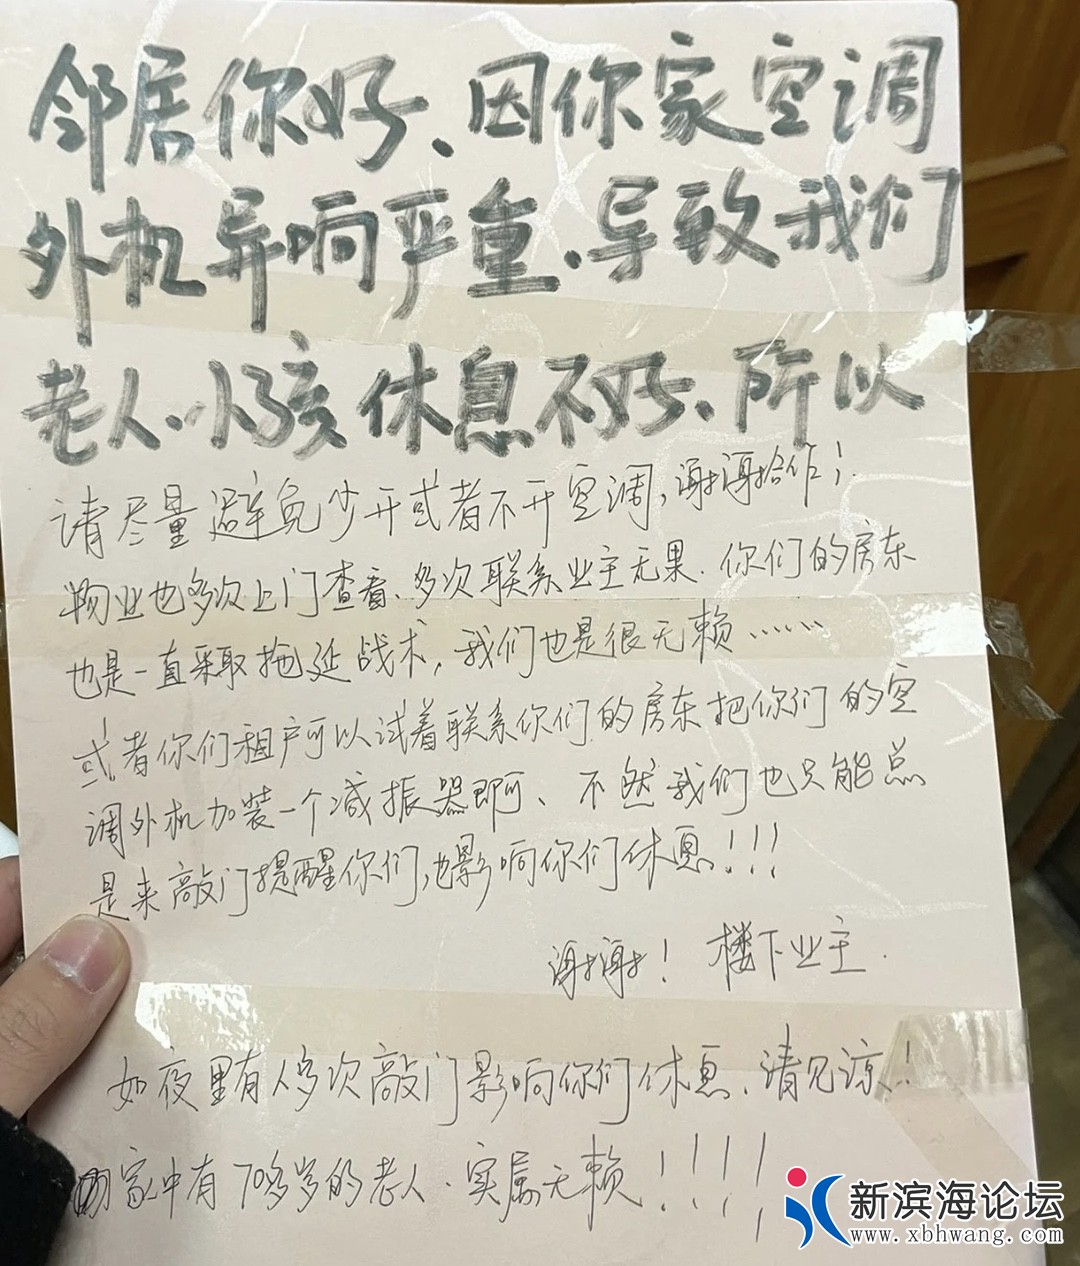 邻居你好、因你家空调
外机异响严重、导致我们
老人、小孩休息不好、所以
请尽量避免少开或者不开空调，谢谢合作；
物业也多次上门查看、多次联系业主无果．你们的房东
也是一直采取拖延战术，我们也是很无赖……
或者你们租户可以试着联系你们的房东把你们的空
调外机加装一个减振器即可、不然我们也只能总
是来敲门提醒你们，也影响你们休息！！！
谢谢！ 楼下业主．
如夜里有人多次敲门影响你们休息．请见谅！
家中有70多岁的老人．实属无赖！！！！！
新滨海论坛
www.xbhwang.com